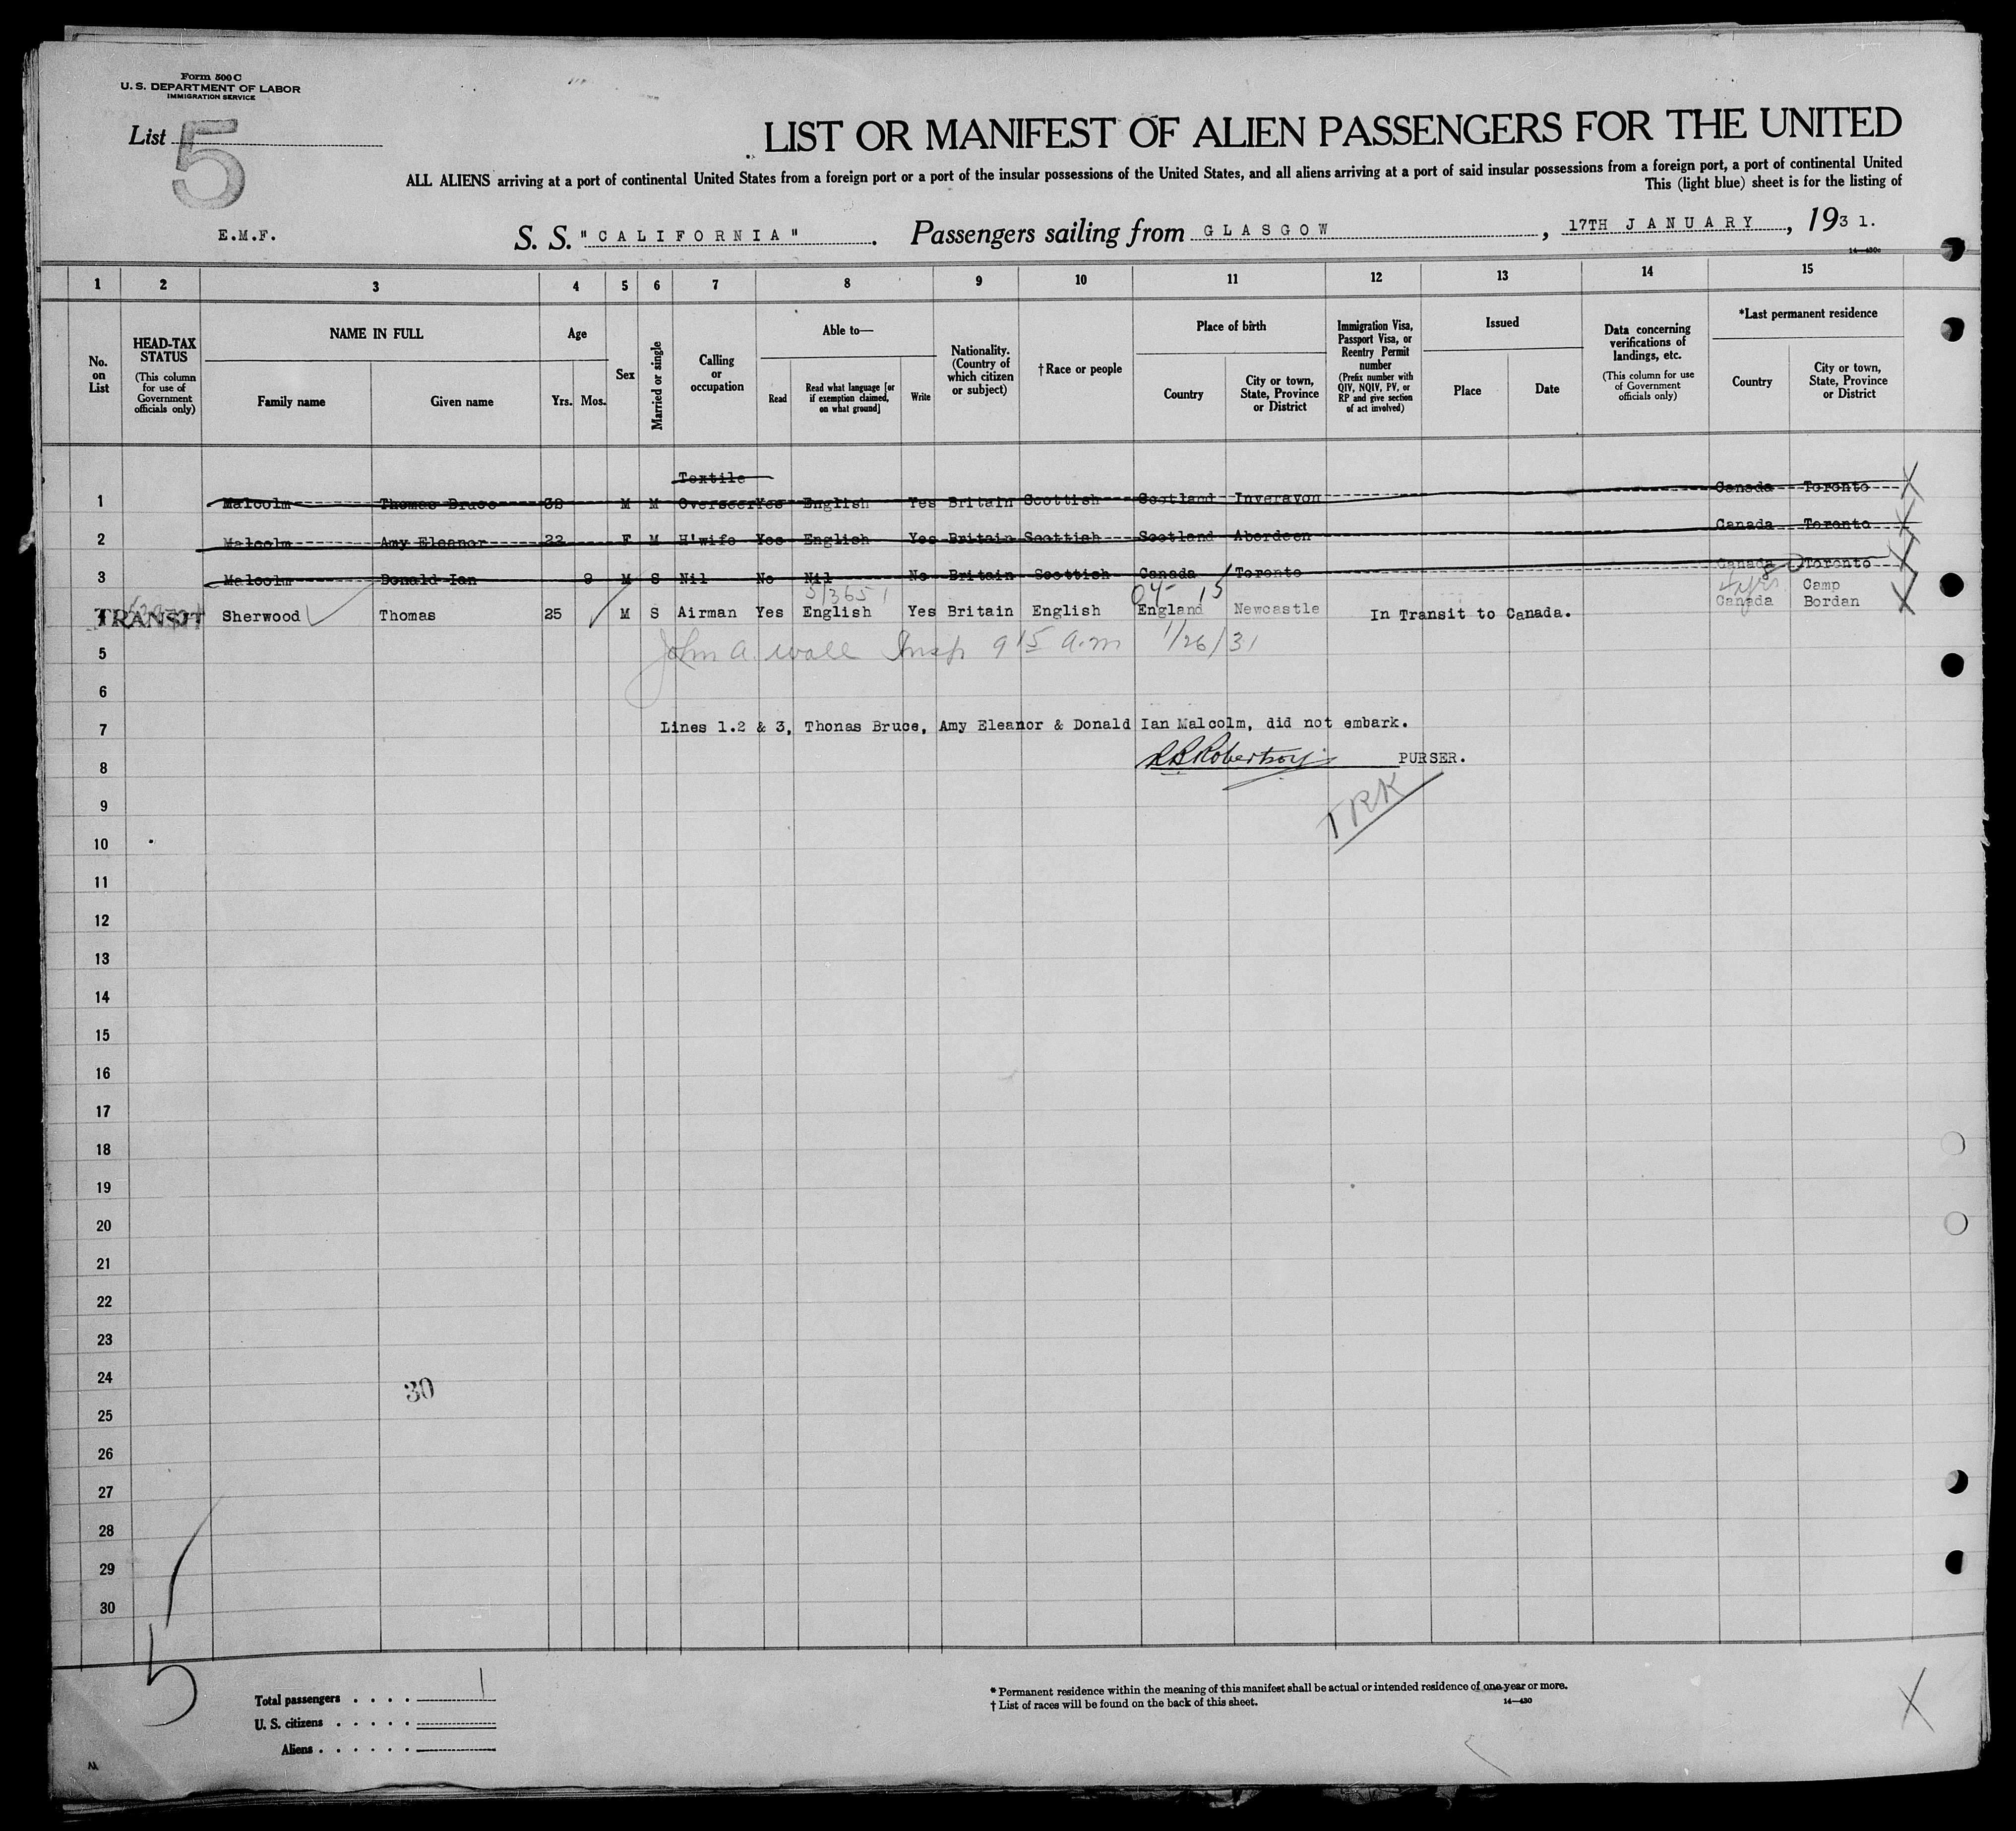 Form 500 C
U. S. DEPARTMENT OF LABOR
IMMIGRATION SERVICE
List 5
LIST OR MANIFEST OF ALIEN PASSENGERS FOR THE UNITED
ALL ALIENS arriving at a port of continental United States from a foreign port or a port of the insular possessions of the United States, and all aliens arriving at a port of said insular possessions from a foreign port, a port of continental United
This (light blue) sheet is for the listing of
E.M.F. S. S. "CALIFORNIA". Passengers sailing from GLASGOW, 17TH JANUARY, 1931.
14—430c
1 2 3 4 5 6 7 8 9 10 11 12 13 14 15
No. on List
HEAD-TAX STATUS (This column for use of Government officials only)
NAME IN FULL
Family name Given name
Age
Yrs. Mos.
Sex
Married or single
Calling or occupation
Able to—
Read Read what language [or if exemption claimed, on what ground] Write
Nationality. (Country of which citizen or subject)
†Race or people
Place of birth
Country City or town, State, Province or District
Immigration Visa, Passport Visa, or Reentry Permit number (Prefix number with QIV, NQIV, PV, or RP and give section of act involved)
Issued
Place Date
Data concerning verifications of landings, etc. (This column for use of Government officials only)
*Last permanent residence
Country City or town, State, Province or District
Textile
1 Malcolm Thomas Bruce 38 M M Overseer Yes English Yes Britain Scottish Scotland Inveravon Canada Toronto X
2 Malcolm Amy Eleanor 32 F M H'wife Yes English Yes Britain Scottish Scotland Aberdeen Canada Toronto X
3 Malcolm Donald Ian 9 M S Nil No Nil No Britain Scottish Canada Toronto Canada Toronto X
4 yrs Camp
TRANSIT Sherwood Thomas 25 M S Airman Yes English Yes Britain English England Newcastle In Transit to Canada. Canada Bordan X
5 John A. Wall Insp 9 15 a.m 1/26/31
6
7 Lines 1.2 & 3, Thonas Bruce, Amy Eleanor & Donald Ian Malcolm, did not embark.
8 Robertson PURSER.
9 TRK
10
11
12
13
14
15
16
17
18
19
20
21
22
23
24
30
25
26
27
28
29
30
5
Total passengers . . . . 1
U. S. citizens . . . . .
Aliens . . . . . .
* Permanent residence within the meaning of this manifest shall be actual or intended residence of one year or more.
† List of races will be found on the back of this sheet.
14—430
X